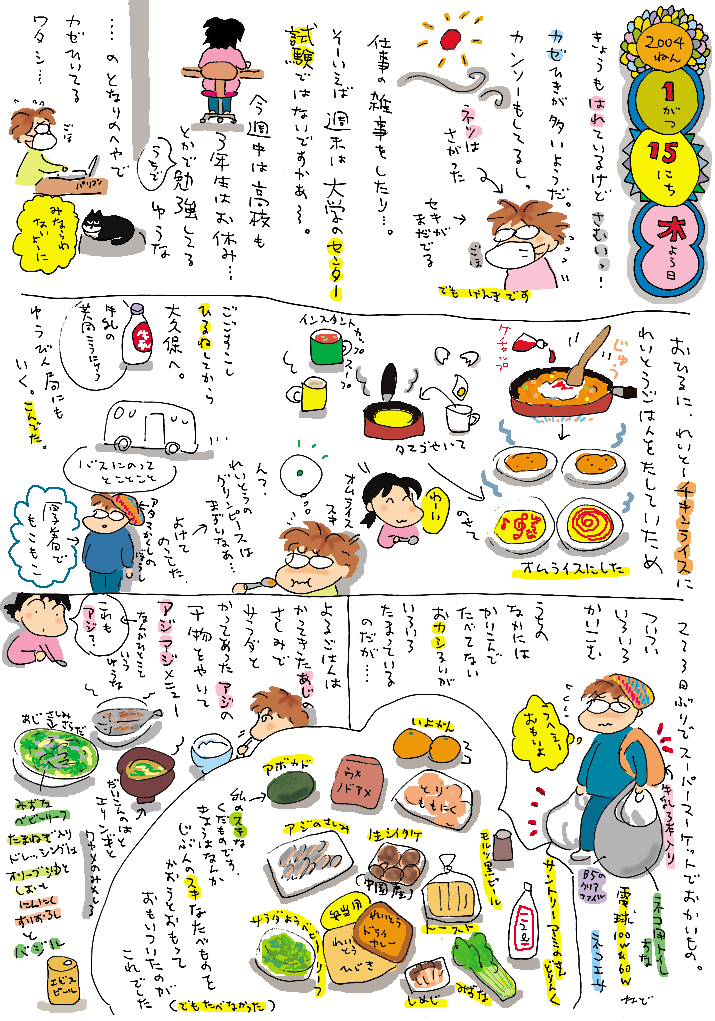 2004
ねん
1
がつ
15
にち
木
よう日
きょうもはれているけどさむいっ!
カゼひきが多いようだ。
カンソーもしてるし。
ネツは
さがった
セキが
まだでる
ごほ
でもげんきです
仕事の雑事をしたり…。
そーいえば週末は大学のセンター
試験ではないですかぁ～。
今週中は高校も
3年生はお休み…
とかで勉強してる
うちで
ゆうな
……のとなりのへやで
カゼひいてる
ワタシ…
ごほ
パソコン
みならわ
ないよーに
おひるに、れいとーチキンライスに
れいとうごはんをたしていため
じゅう
ケチャップ
タマゴやいて
のせて
オムライスにした
わーい
オムライス
スキ
インスタントカップ
スープ
んっ?
れいとうの
グリンピースは
まずいなぁ…
よけて
のこした
ごごすこし
ひるねしてから
大久保へ。
牛乳の
美向こうじょう
牛乳
ゆうびん局にも
いく。こんでた。
バスにのって
とことこと
アタマかくしの
ぼうし
厚着で
もこもこ
2、3日ぶりでスーパーマーケットでおかいもの。
ついつい
いろいろ
かいこむ
うちの
なかには
かいこんで
たべてない
おカシるいが
いろいろ
たまっている
のだが…
うへーっ
おもいよ
牛乳3本入り
ネコ用トイレ
すな
B5の
クリア
ファイル
電球100Wと60W
ネコエサ
ねで
よるごはんは
かってきたあじの
さしみで
サラダと
かってあったアジの
干物をやいて
アジアジメニュー
なんかれこと
いう
ゆうな
これも
アジ?
あじさしみサラダ
みずな
ベビーリーフ
たまねぎ入り
ドレッシングは
オリーブゆと
しおと
にんにく
すりおろし
と
バジル
だいこんのはと
エリンギと
ワカメのみそしる
エビス
ビール
いよかん
アボカド
ウメ
ノドアメ
とり
ももにく
私のスキな
くだものです。
きょうはなんか
じぶんのスキなたべものを
かおうとおもって
おもいついたが
これでした
(でもたべなかった)
アジのさしみ
生シイタケ
(中国産)
モルツ黒ビール
トースト
弁当用
れいとう
ドライ
カレー
れいとう
ひじき
サラダようベビーリーフ
しめじ
みずな